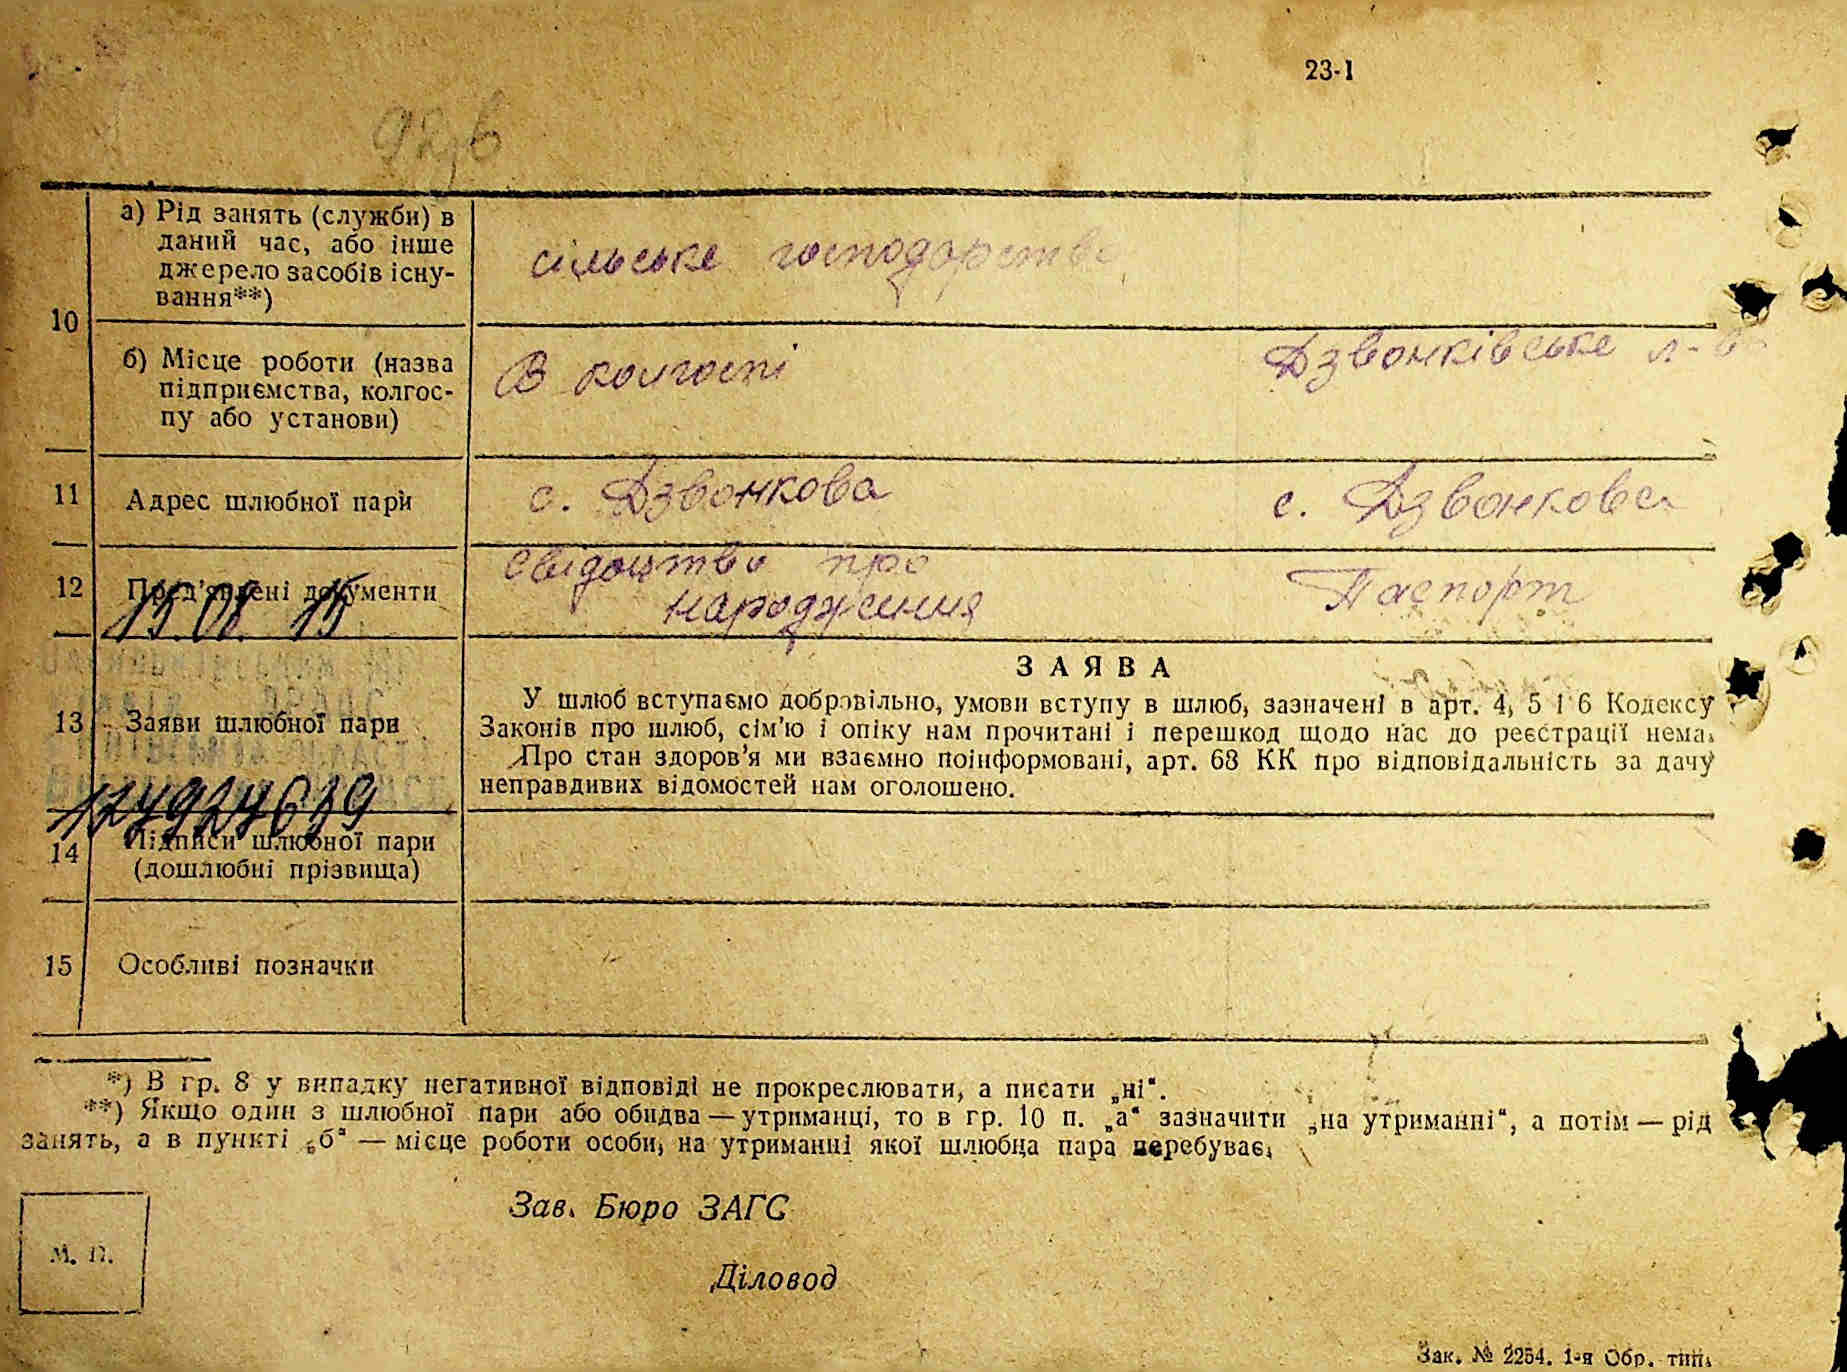 23-1
10
а) Рід занять (служби) в
даний час, або інше
джерело засобів існу-
вання**)
сільське господарство
б) Місце роботи (назва
підприємства, колгос-
пу або установи)
В колгоспі
Дзвонківське л-во
11
Адрес шлюбної пари
с. Дзвонкова
с. Дзвонкова
12
Пред'явлені документи
Свідоцтво про
народження
Паспорт
15.08. 15
13
Заяви шлюбної пари
ЗАЯВА
У шлюб вступаємо добровільно, умови вступу в шлюб, зазначені в арт. 4, 5 і 6 Кодексу
Законів про шлюб, сім'ю і опіку нам прочитані і перешкод щодо нас до реєстрації нема.
Про стан здоров'я ми взаємно поінформовані, арт. 68 КК про відповідальність за дачу
неправдивих відомостей нам оголошено.
14
Підписи шлюбної пари
(дошлюбні прізвища)
15
Особливі позначки
*) В гр. 8 у випадку негативної відповіді не прокреслювати, а писати „ні“.
**) Якщо один з шлюбної пари або обидва — утриманці, то в гр. 10 п. „а“ зазначити „на утриманні“, а потім — рід
занять, а в пункті „б“ — місце роботи особи, на утриманні якої шлюбна пара перебуває.
Зав. Бюро ЗАГС
М. П.
Діловод
Зак. № 2254. 1-я Обр. тип.